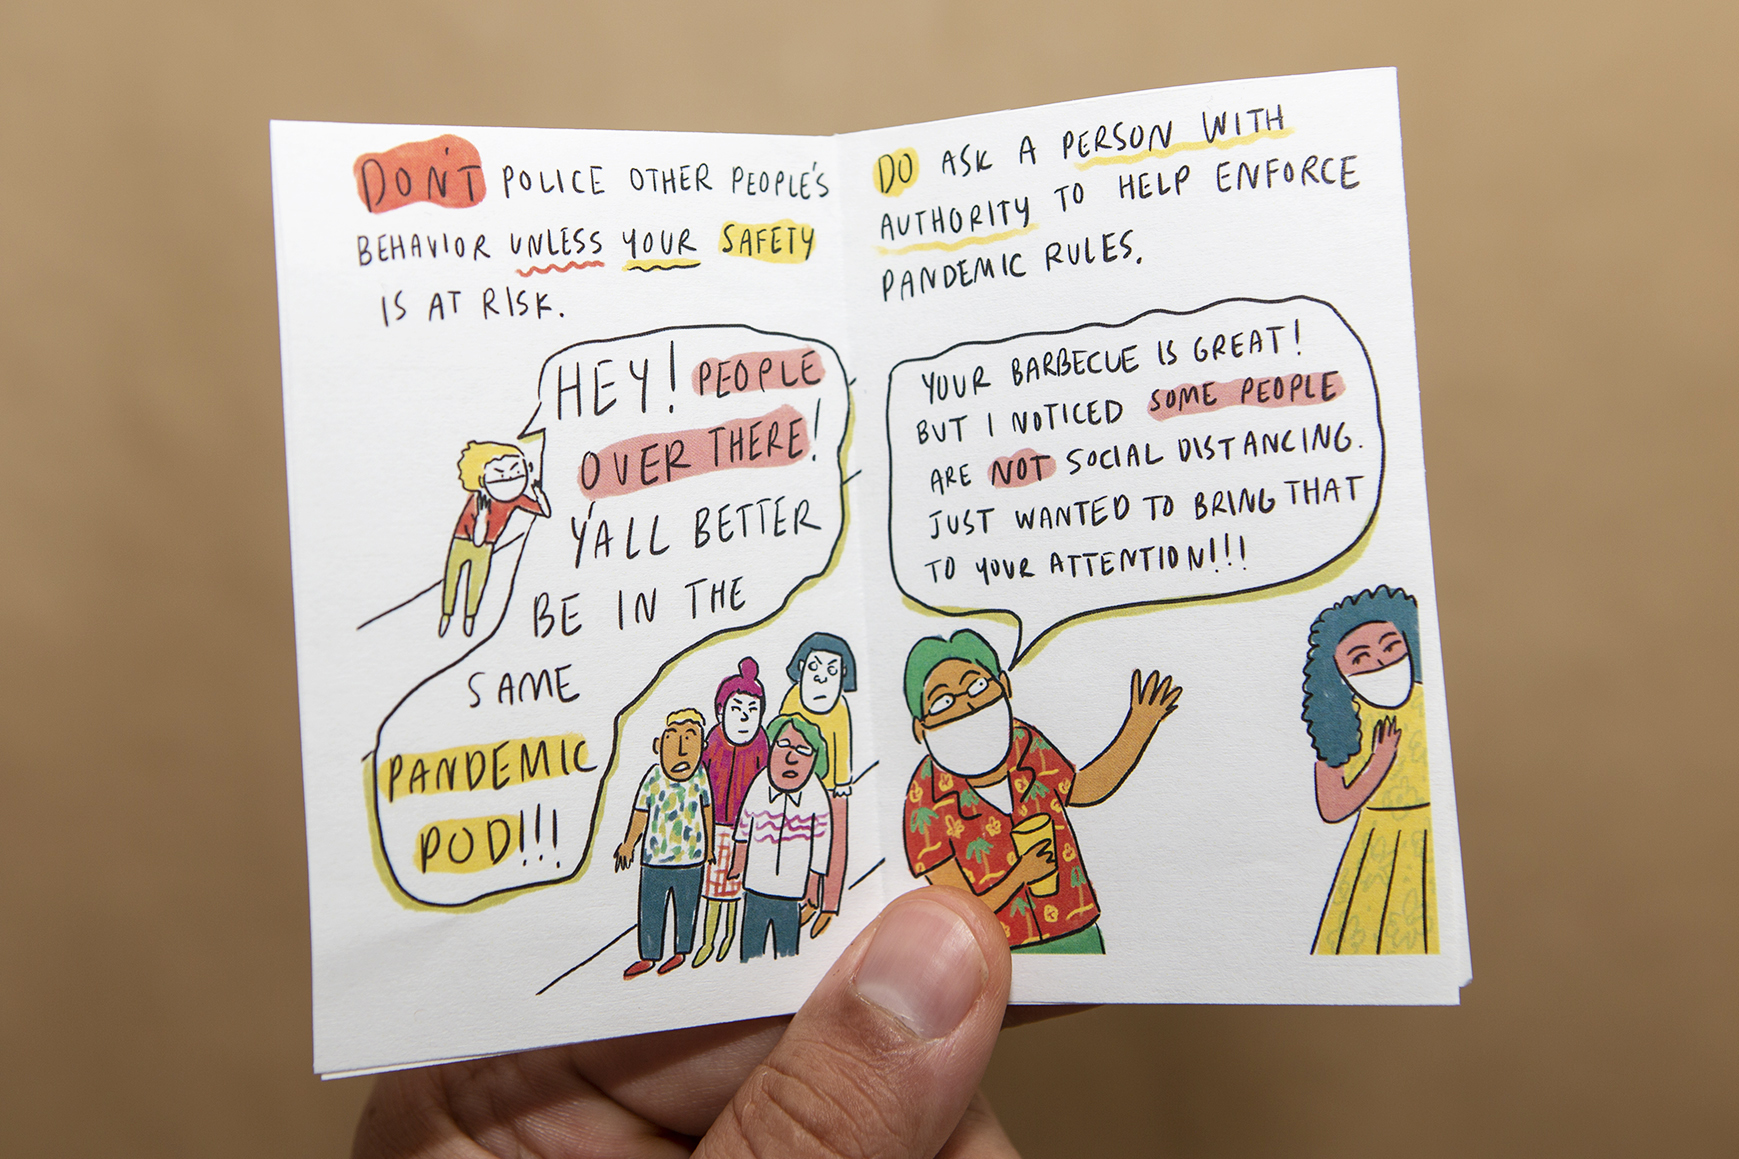 DON'T POLICE OTHER PEOPLE'S
BEHAVIOR UNLESS YOUR SAFETY
IS AT RISK.
HEY! PEOPLE
OVER THERE!
Y'ALL BETTER
BE IN THE
SAME
PANDEMIC
POD!!!
DO ASK A PERSON WITH
AUTHORITY TO HELP ENFORCE
PANDEMIC RULES.
YOUR BARBECUE IS GREAT!
BUT I NOTICED SOME PEOPLE
ARE NOT SOCIAL DISTANCING.
JUST WANTED TO BRING THAT
TO YOUR ATTENTION!!!